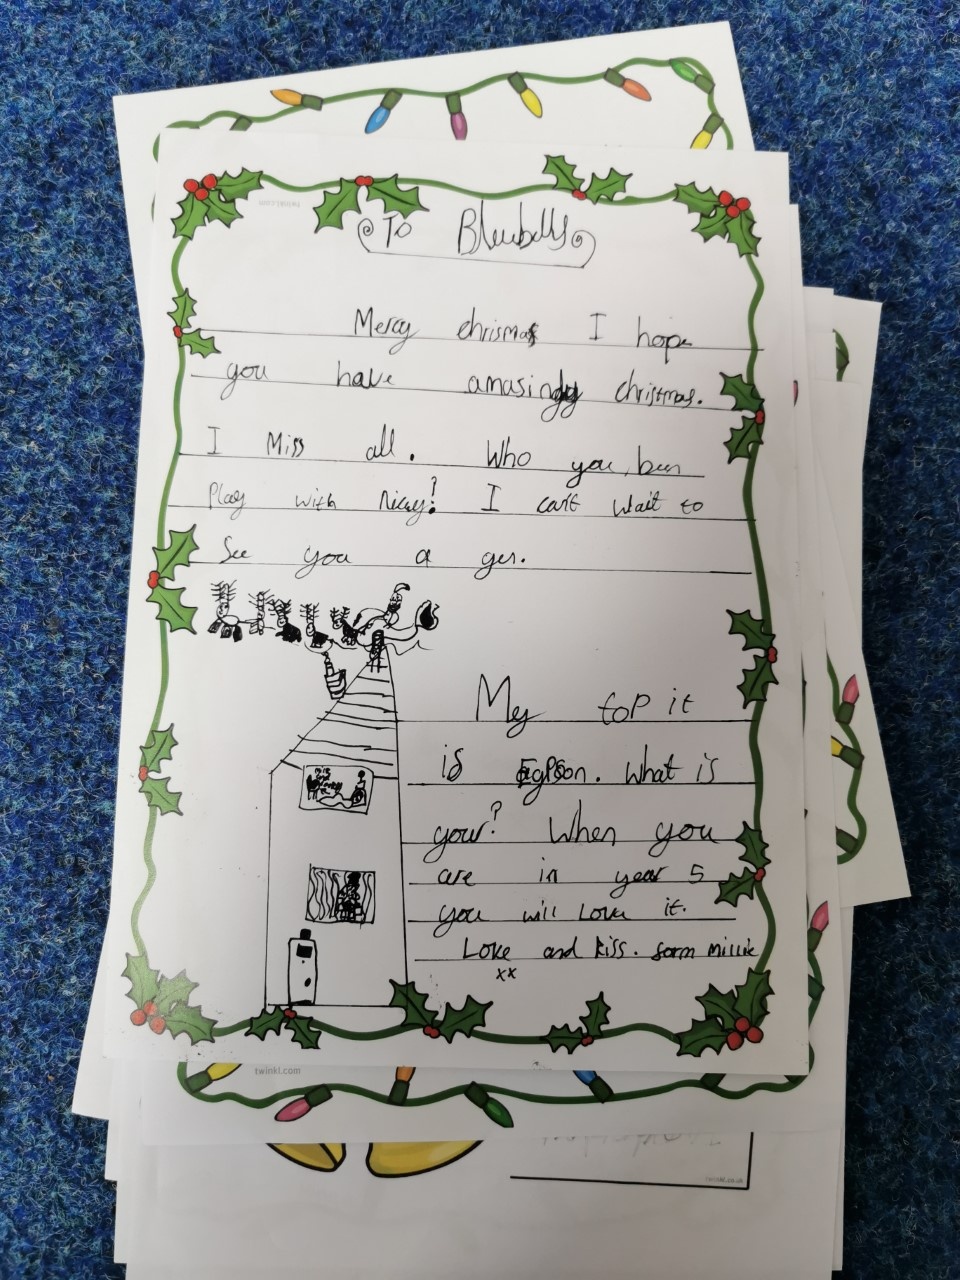 To Bluebells
Merry chrismas I hope
you have amasingly christmas.
I Miss all. Who you bun
Play with Nicey? I can't wait to
See you a gen.
My top it
is Egption. What is
your? When you
are in year 5
you will Love it.
Love and kiss. form millie
xx
twinkl.com
twinkl.com
twinkl.co.uk